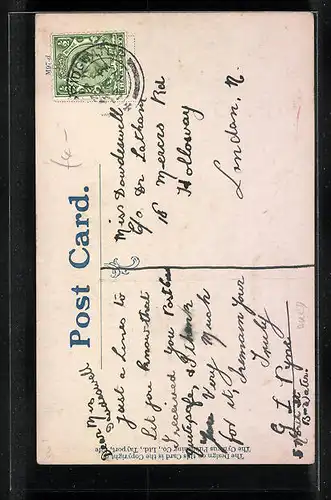 Post Card.
The Design on this Card is the Copyright of
The Cynicus Publishing Co., Ltd., Tayport, Fife
Dear Miss
Dowdeswell
Just a lines to
let you know that
I received you Postcard
quite safe & I thank
you Very Much
for it, I remain Your
Truly
G. L. Pyne
Miss Dowdeswell
C/o Dr Latham
16 Mercers Rd
Holloway
London, N.